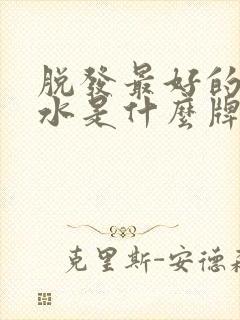 脱發最好的
水是什麼牌
克里斯-安德森